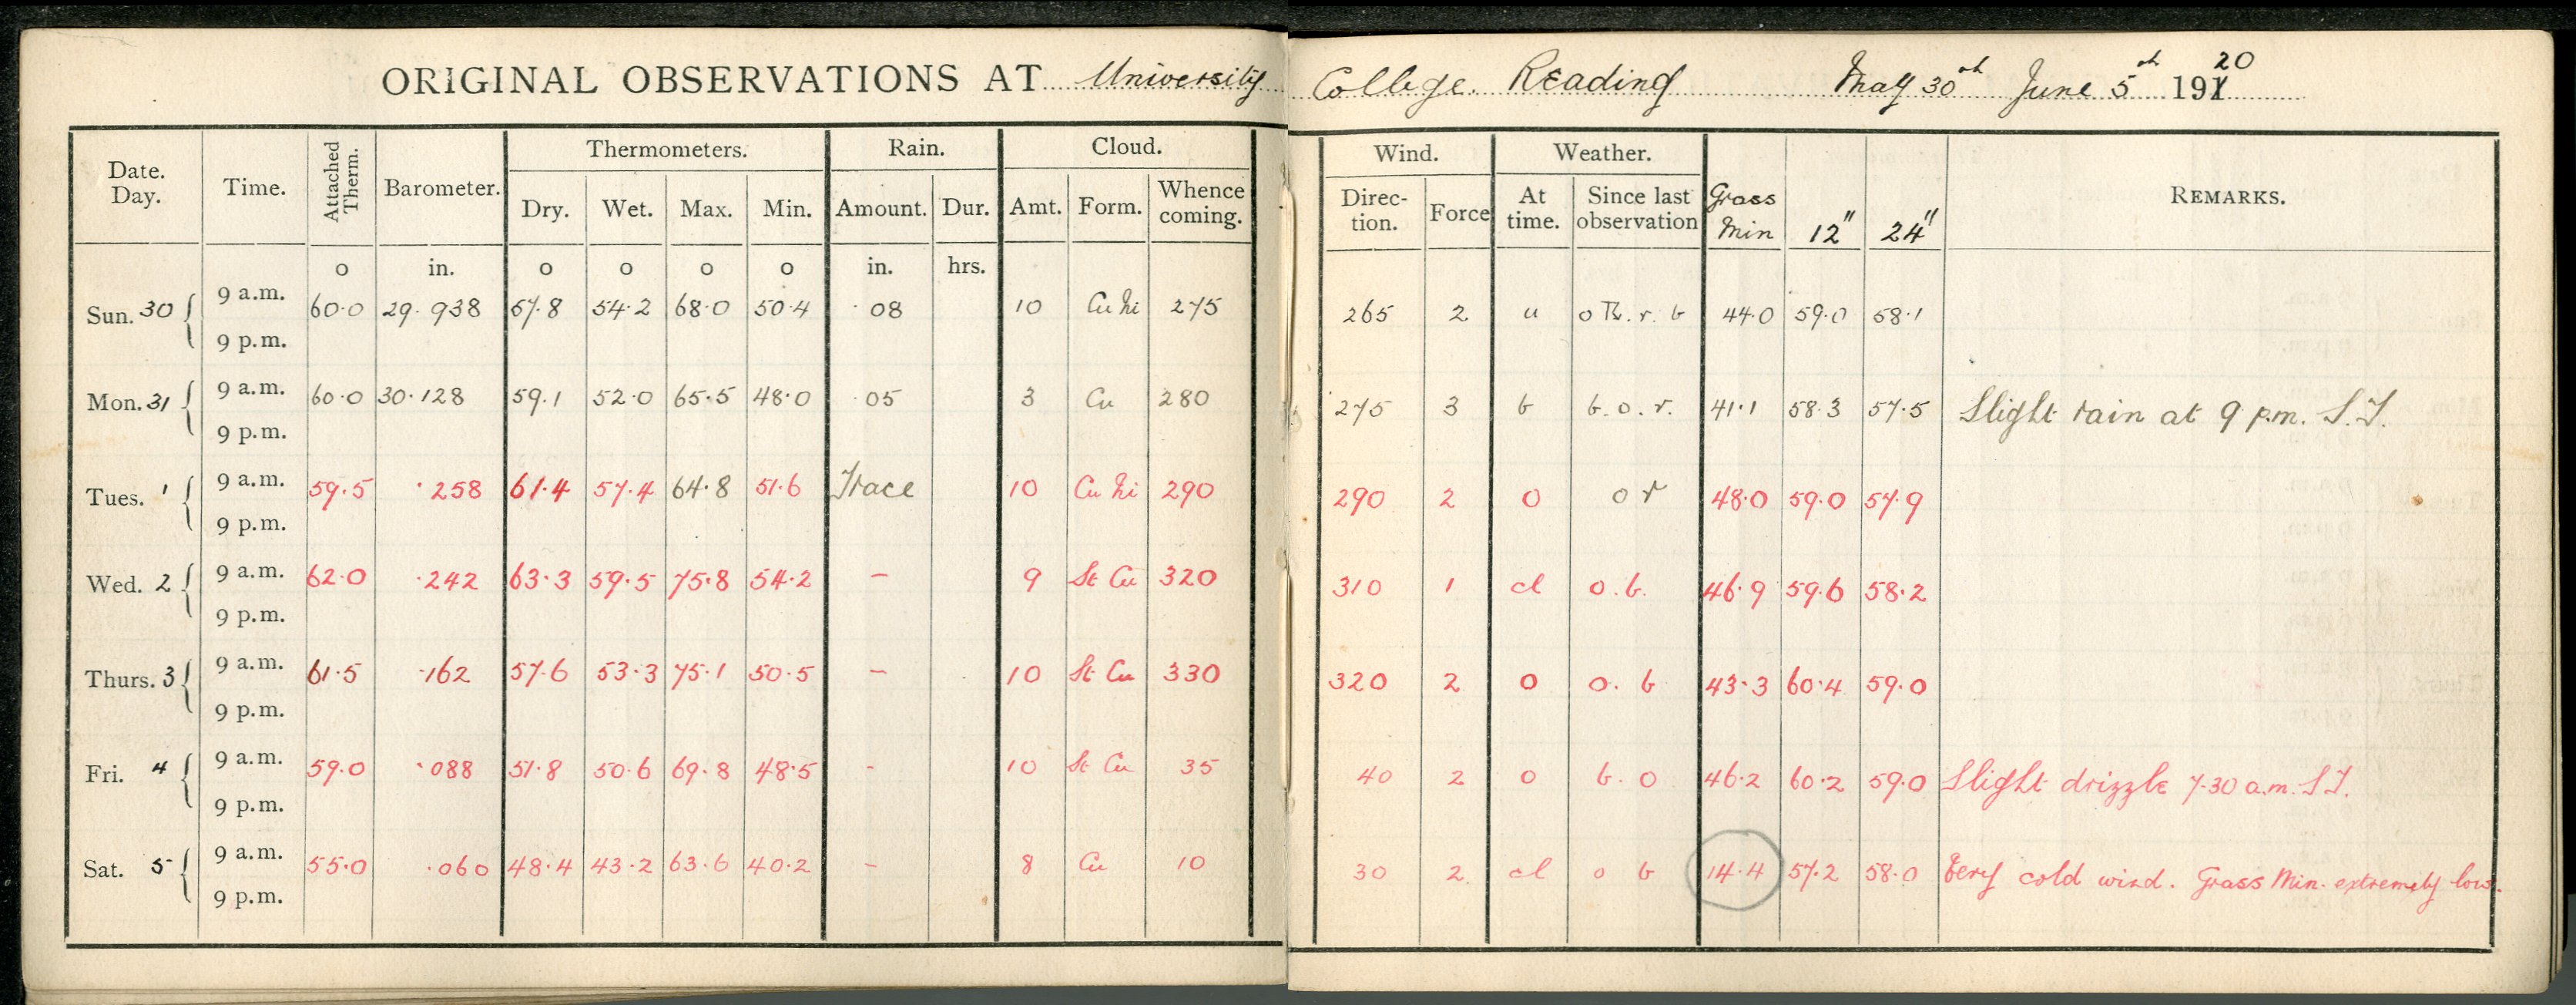 ORIGINAL OBSERVATIONS AT University College. Reading May 30th June 5th 1920
Date. Day. Time. Attached Therm. Barometer. Thermometers. Rain. Cloud. Wind. Weather. Grass Min 12" 24" REMARKS.
Dry. Wet. Max. Min. Amount. Dur. Amt. Form. Whence coming. Direction. Force At time. Since last observation
o in. o o o o in. hrs.
Sun. 30 9 a.m. 60.0 29.938 57.8 54.2 68.0 50.4 .08 10 Cu Ni 275 265 2 u o Th. r. b 44.0 59.0 58.1
9 p.m.
Mon. 31 9 a.m. 60.0 30.128 59.1 52.0 65.5 48.0 .05 3 Cu 280 275 3 b b. o. r. 41.1 58.3 57.5 Slight rain at 9 p.m. S.T.
9 p.m.
Tues. 1 9 a.m. 59.5 .258 61.4 57.4 64.8 51.6 Trace 10 Cu Ni 290 290 2 o o r 48.0 59.0 57.9
9 p.m.
Wed. 2 9 a.m. 62.0 .242 63.3 59.5 75.8 54.2 — 9 St Cu 320 310 1 cl o. b. 46.9 59.6 58.2
9 p.m.
Thurs. 3 9 a.m. 61.5 .162 57.6 53.3 75.1 50.5 — 10 St Cu 330 320 2 o o. b 43.3 60.4 59.0
9 p.m.
Fri. 4 9 a.m. 59.0 .088 51.8 50.6 69.8 48.5 - 10 St Cu 35 40 2 o b. o 46.2 60.2 59.0 Slight drizzle 7.30 a.m. S T.
9 p.m.
Sat. 5 9 a.m. 55.0 .060 48.4 43.2 63.6 40.2 - 8 Cu 10 30 2. cl o b 14.4 57.2 58.0 Very cold wind. Grass Min. extremely low.
9 p.m.